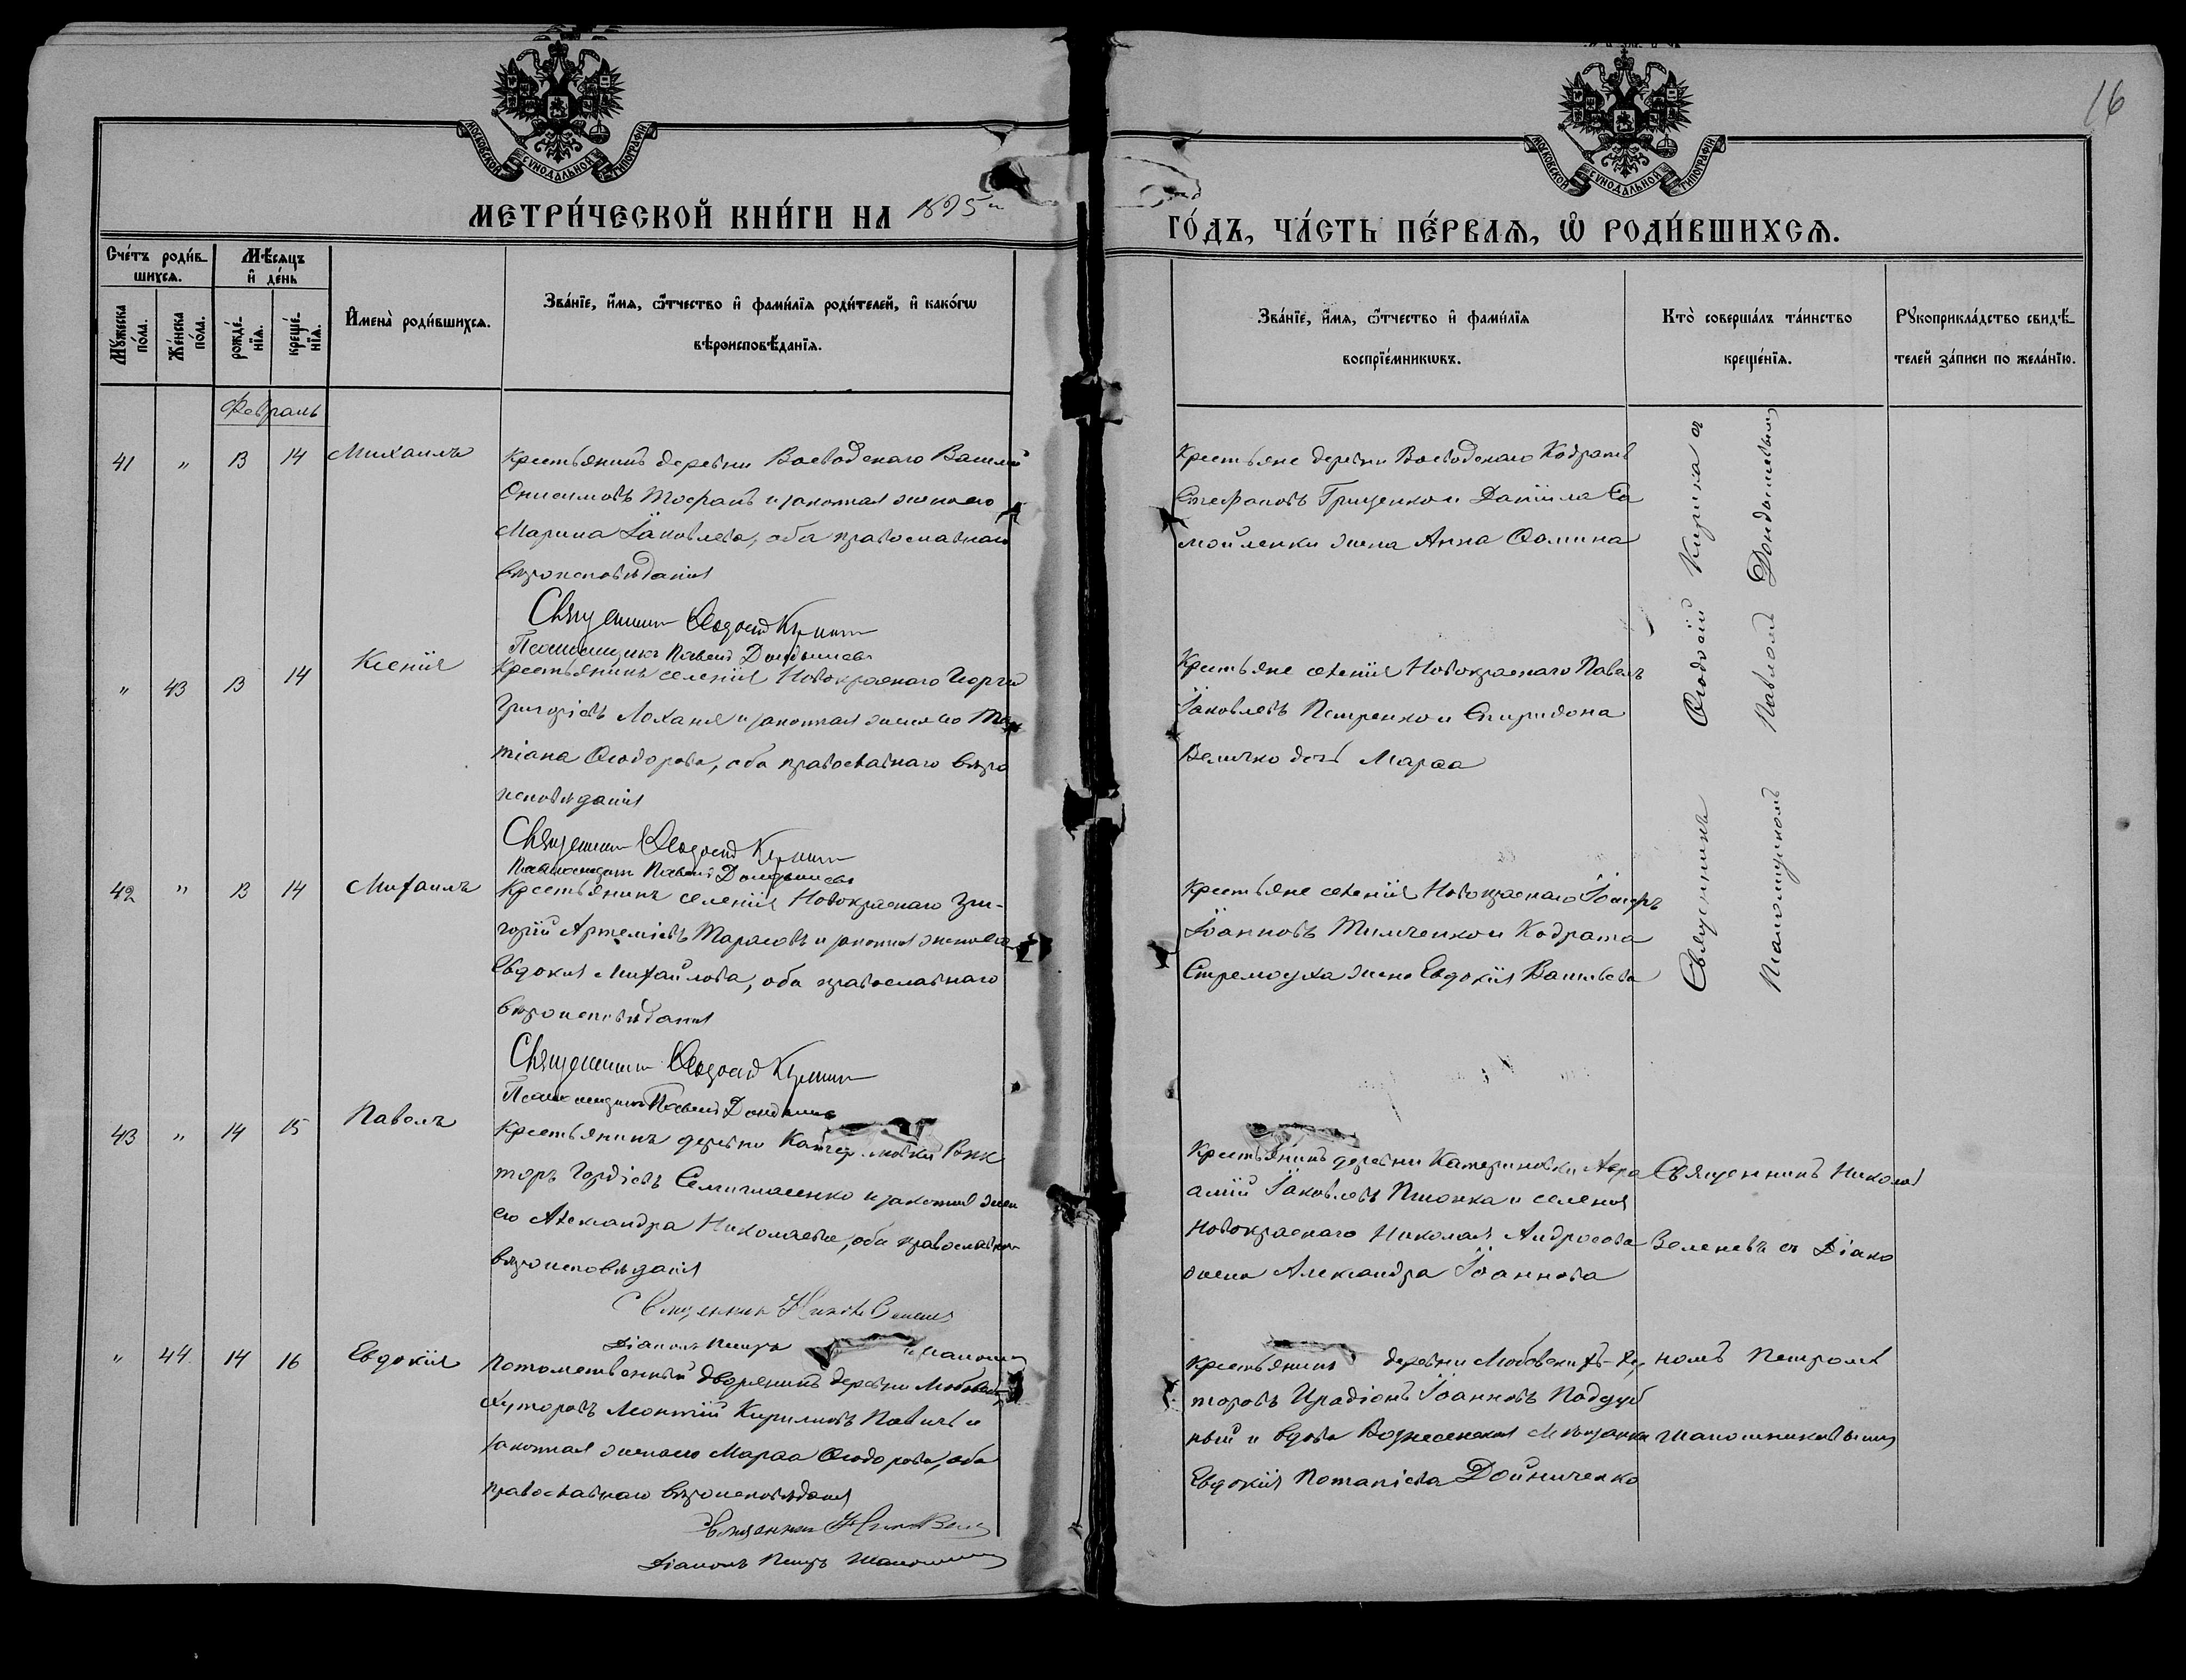 16
МОСКОВСКОЙ СѴНОДАЛЬНОЙ ТИПОГРАФІИ
МОСКОВСКОЙ СѴНОДАЛЬНОЙ ТИПОГРАФІИ
МЕТРИ́ЧЕСКОЙ КНИ́ГИ НА 1895 й
ГО́ДЪ, ЧА́СТЬ ПЕ́РВАѦ, Ѡ҆ РОДИ́ВШИХСѦ.
Сче́тъ роди́в-
шихсѧ.
Мꙋ́жеска по́ла.
Же́нска по́ла.
Мѣ́сяцъ
и҆ де́нь
рожде́-
нїѧ.
креще́-
нїѧ.
И҆мена̀ роди́вшихсѧ.
Зва́нїе, и҆́мѧ, ѻ҆́тчество и҆ фами́лїѧ роди́телей, и҆ како́гѡ
вѣроисповѣ́данїѧ.
Зва́нїе, и҆́мѧ, ѻ҆́тчество и҆ фами́лїѧ
воспрїе́мникѡвъ.
Кто̀ соверша́лъ та́инство
креще́нїѧ.
Рꙋкоприкла́дство свидѣ́-
телей за́писи по жела́нїю.
Февраль
41 " 13 14 Михаилъ
Крестьянинъ деревни Воеводскаго Василій
Онисимовъ Тофанъ и законная жена его
Марина Іаковлева, оба православнаго
вѣроисповѣданія
Священникъ Ѳеодосій
Псаломщикъ Павелъ
Крестьяне деревни Воеводскаго Кодратъ
Стефановъ Грищенко и Даніила Са
мойленки жена Анна Ѳомина
Священникъ Ѳеодосій Кирика съ
Псаломщикомъ Павломъ
" 43 13 14 Ксенія
Крестьянинъ селенія Новокраснаго Георгій
Григоріевъ Лоханя и законная жена его Та
тіана Ѳеодорова, оба православнаго вѣро
исповѣданія
Священникъ Ѳеодосій
Псаломщикъ Павелъ
Крестьяне селенія Новокраснаго Павелъ
Іаковлевъ Петренко и Спиридона
Величко дочь Марѳа
42 " 13 14 Михаилъ
Крестьянинъ селенія Новокраснаго Гри-
горій Артеміевъ Тарасовъ и законная жена его
Евдокія Михайлова, оба православнаго
вѣроисповѣданія
Священникъ Ѳеодосій
Псаломщикъ Павелъ
Крестьяне селенія Новокраснаго Іосифъ
Іоанновъ Тимченко и Кодрата
Стремоуха жена Евдокія Васильева
43 " 14 15 Павелъ
Крестьянинъ деревни Вик
торъ Гордіевъ Семигласенко и законная жена
его Александра Николаева, оба православнаго
вѣроисповѣданія
Священникъ
Діаконъ Петръ
Крестьянинъ деревни Катериновки Авра
амій Іаковлевъ и селенія
Новокраснаго Николая Андросова
жена Александра Іоаннова
Священникъ Николай
Веленевъ съ Діако
" 44 14 16 Евдокія
Потомственный дворянинъ деревни
Хуторовъ Леонтій Кириловъ Павичъ и
законная жена его Марѳа Ѳеодорова, оба
православнаго вѣроисповѣданія
Священникъ
Діаконъ Петръ
Крестьянинъ деревни Ху
торовъ Иродіонъ Іоанновъ Поддуб
ный и вдова Вознесенская Мѣщанка
Евдокія Потапіева Дойниченко
номъ Петромъ
Шапошниковымъ